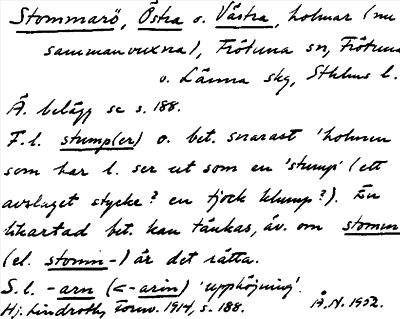 Stommarö, Östra o. Västra, holmar (nu
sammanvuxna), Frötuna sn, Frötuna
o. Länna skg, Sthlms l.
Ä. belägg se s. 188.
F.l. stump(er) o. bet. snarast 'holmen
som har l. ser ut som en 'stump' (ett
avslaget stycke? en tjock klump?). En
likartad bet. kan tänkas, äv. om stomm
(el. stomn-) är det rätta.
S.l. -arn (<-arin) 'upphöjning'.
Hj. Lindroth, Fornv. 1914, s. 188. Å.N. 1952.